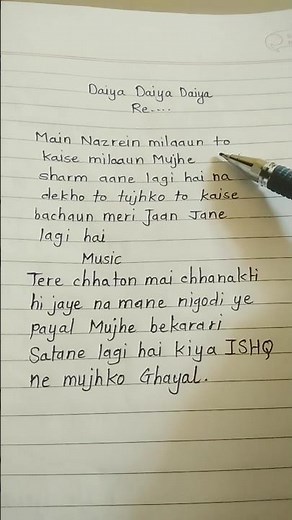 Daiya Daiya Daiya
Re....
Main Nazrein milaaun to
kaise milaaun Mujhe
sharm aane lagi hai na
dekho to tujhko to kaise
bachaun meri Jaan Jane
lagi hai
Music
Tere chhaton mai chhanakti
hi jaye na mane nigodi ye
payal Mujhe bekarari
Satane lagi hai kiya ISHQ
ne mujhko Ghayal.